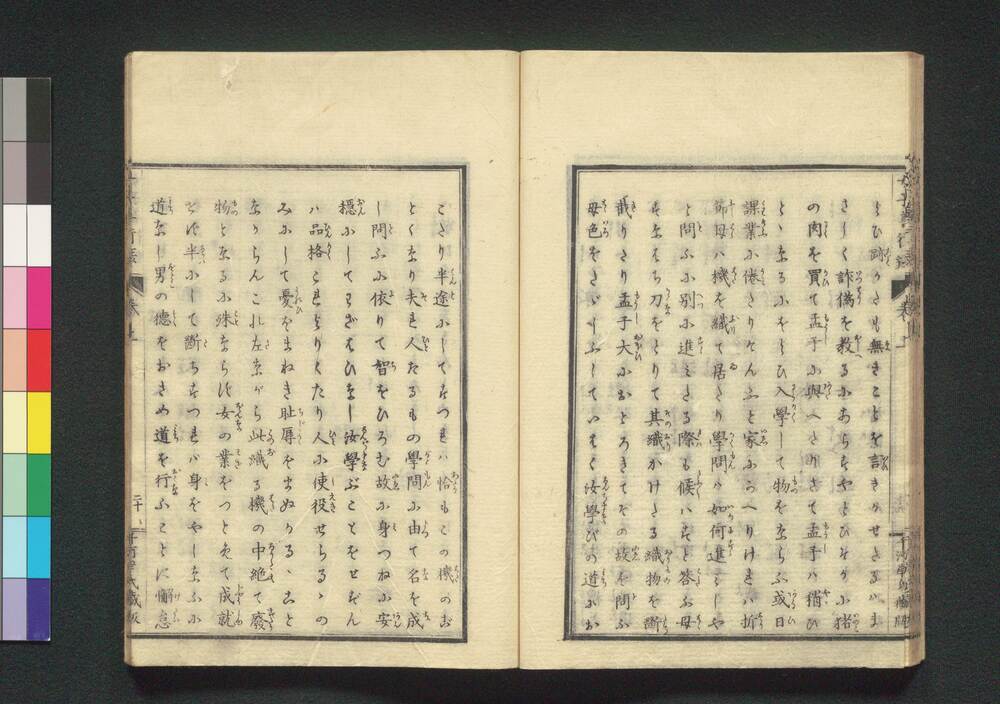 よひ跡かたも無きことを言きかせたるハま
さしく詐偽を教るにあらすやとひそかに猪
の肉を買て孟子に與へたりさて孟子ハ猶ひ
とゝなるにをよひ入學して物をならふ或日
課業に倦たりけんふと家にかへりけれハ折
節母ハ機を織て居たり學問ハ如何進ミしや
と問ふに別に進ミたる際も候ハすと答ふ母
すなはち刀をとりて其織かけたる織物を斷
截りたり孟子大におとろきてその故を問ふ
母色をたゝしふしていはく汝學びの道にお
こたり半途にしてすつれハ恰もこの機のお
とくなり夫れ人たるもの學問に由て名を成
し問ふに依りて智をひろむ故に身つねに安
穩にしてわざはひなし汝學ぶことをせずん
ハ品格これよりくたり人に使役せらるゝの
みにして憂をまねき耻辱をまぬかるゝこと
なからんこれ左なから此織る機の中絶て廢
物となるに殊ならす女の業をつとめて成就
せす半にして斷ちすつれバ身をやしなふに
道なし男の德をおさめ道を行ふことに懈怠
二十